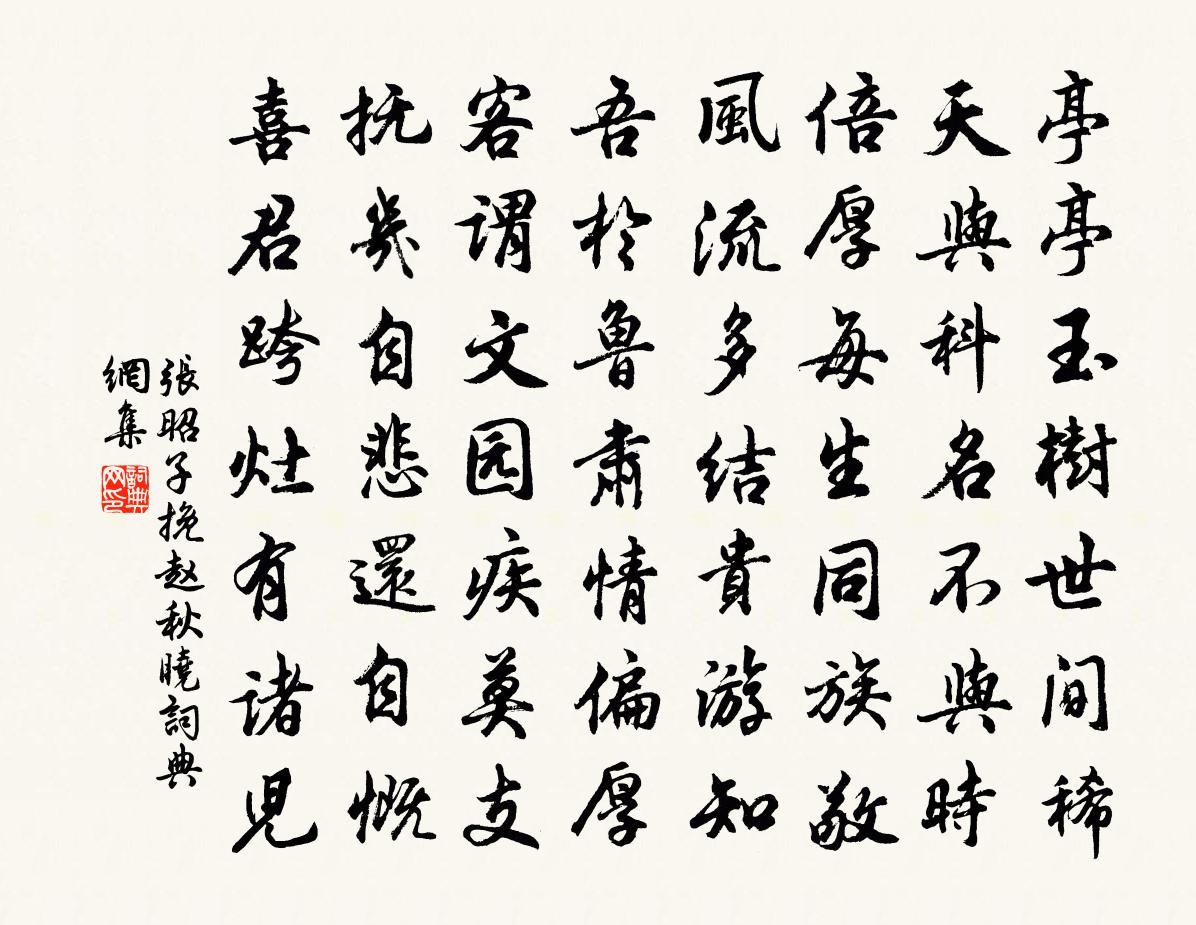 亭亭玉樹世间稀
天與科名不與時
倍厚每生同族敬
風流多結貴游知
吾於魯肃情偏厚
客谓文园疾莫支
抚几自悲還自慨
喜君跨灶有诸児
張昭子挽赵秋曉詞典
網集
詞典网印